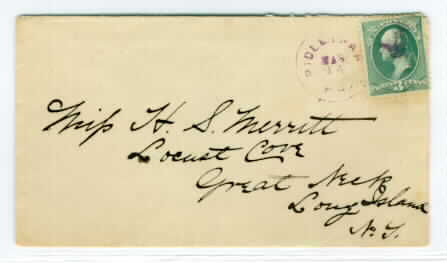 MAR
Miss H. S. Merritt
Locust Cove
Great Neck
Long Island
N. Y.